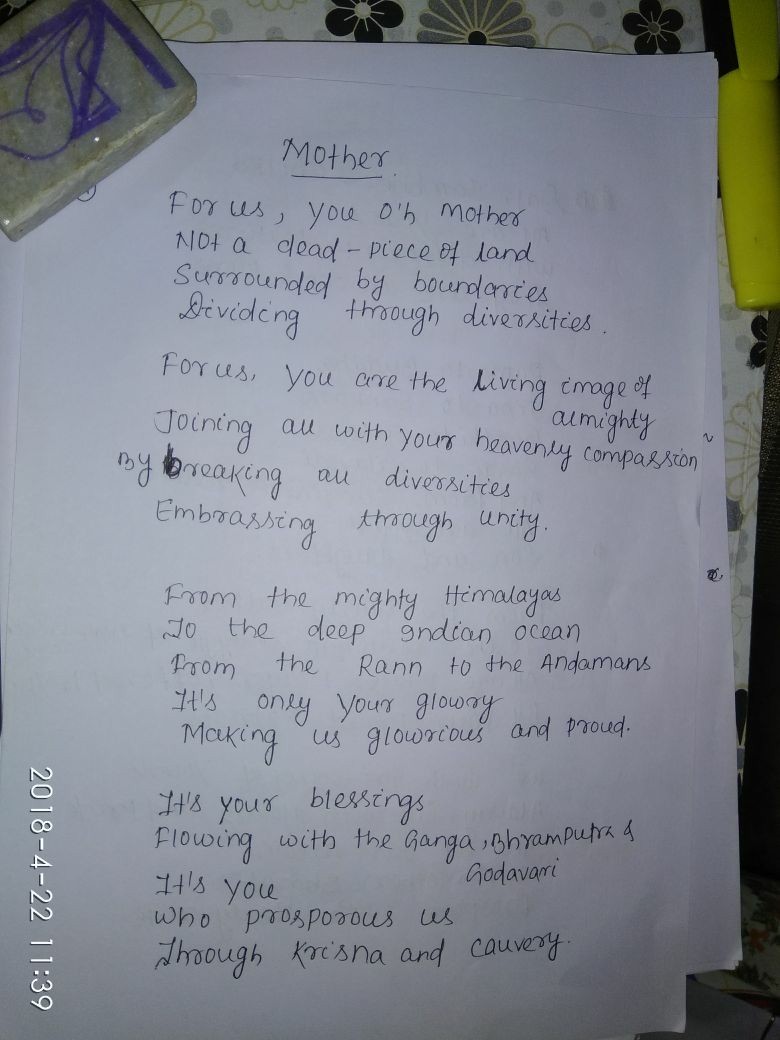 Mother
For us, you O'h Mother
Not a dead - piece of land
Surrounded by boundaries
Dividing through diversities.
For us, you are the living image of
almighty
Joining all with your heavenly compassion
By breaking all diversities
Embrassing through unity.
From the mighty Himalayas
To the deep Indian ocean
From the Rann to the Andamans
It's only your glowry
Making us glowrious and proud.
It's your blessings
Flowing with the Ganga, Bhramputra &
Godavari
It's you
who prosporous us
Through Krisna and cauvery.
2018-4-22 11:39